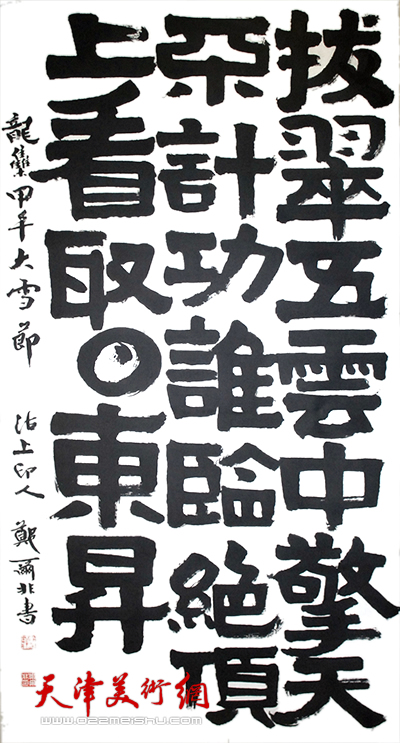 拔翠五雲中擎天
不計功誰臨絕頂
上看取⊙東昇
龍集甲午大雪節 沽上印人 鄭爾非書
天津美術網
www.022meishu.com